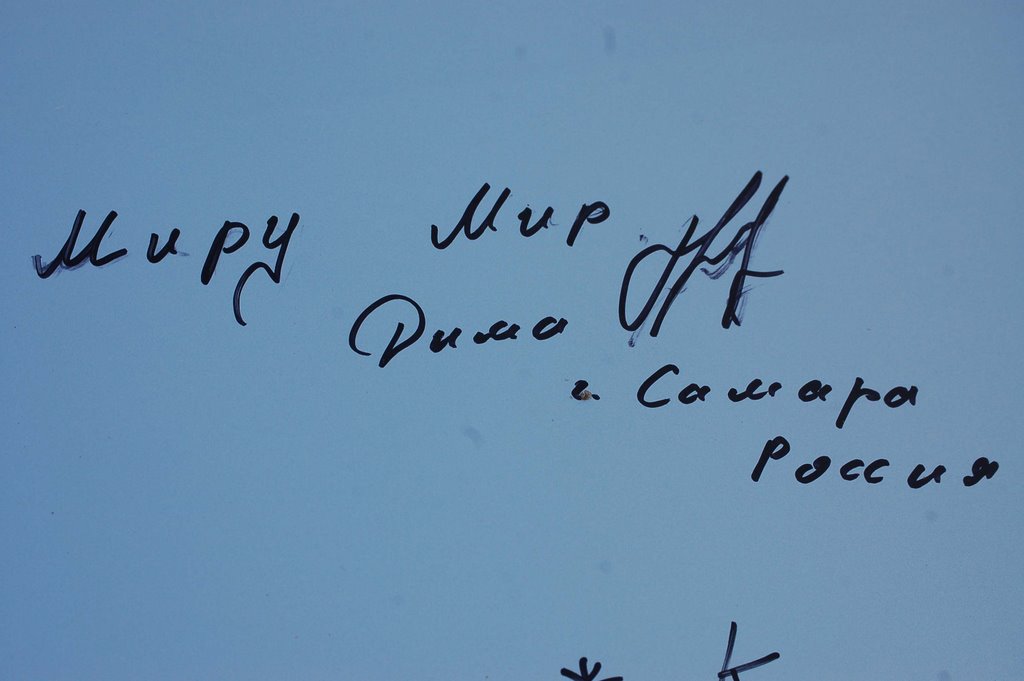 Миру Мир
Дима
г. Самара
Россия